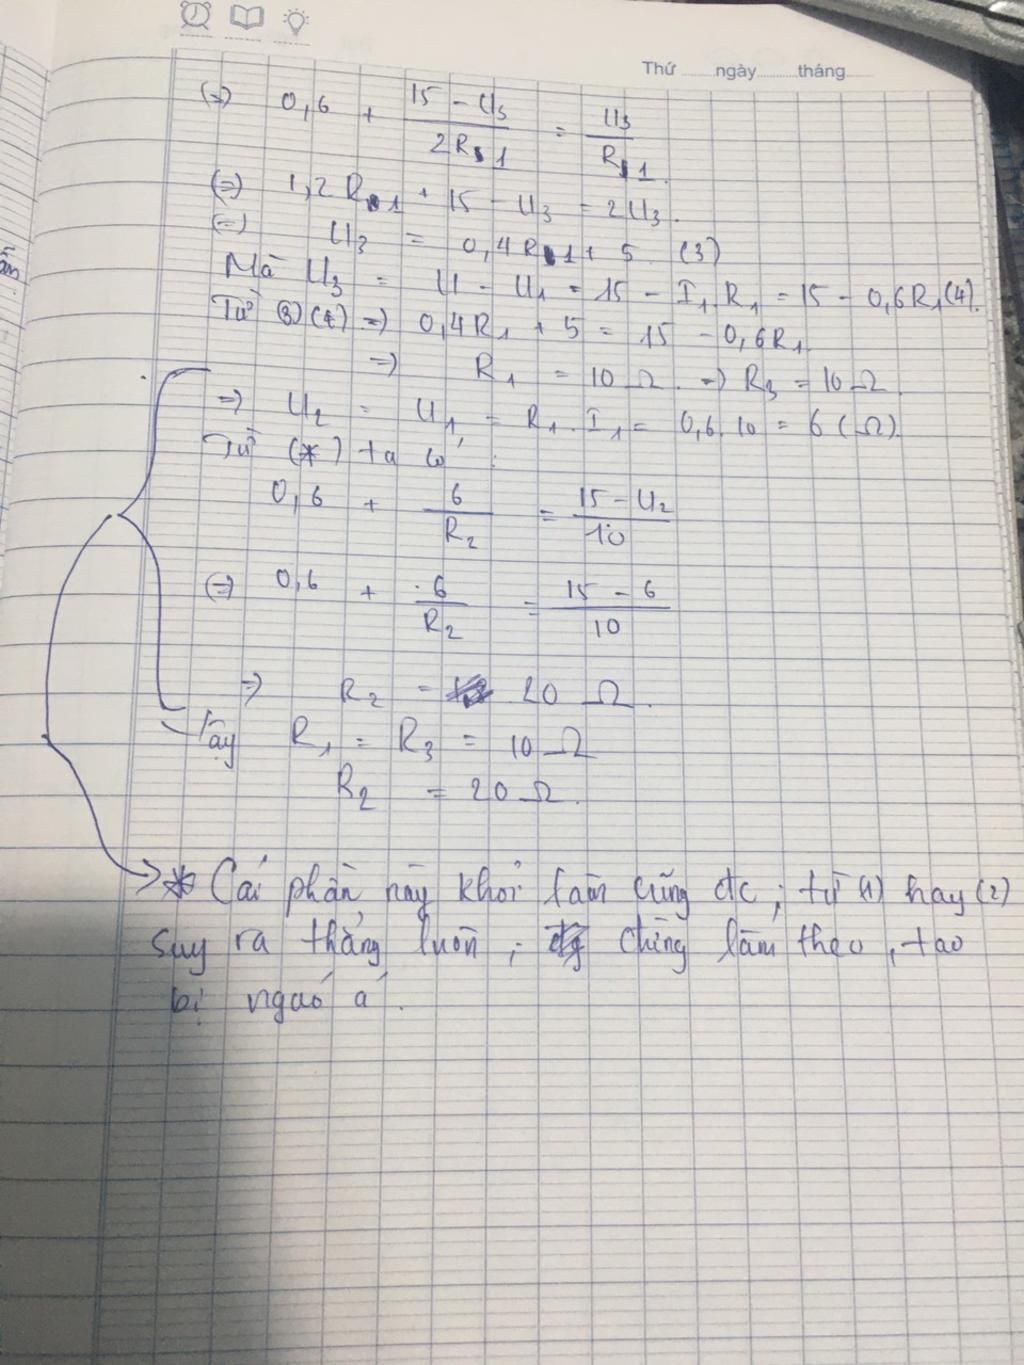 Thứ ngày tháng
(=) 0,6 + (15 - U3)/(2R1) = U3/R1
(=) 1,2R1 + 15 - U3 = 2U3.
(=) U3 = 0,4R1 + 5 (3)
Mà U3 = U - U1 = 15 - I1R1 = 15 - 0,6R1 (4).
Từ (3)(4) =) 0,4R1 + 5 = 15 - 0,6R1
=) R1 = 10 Ω =) R3 = 10 Ω
=) U2 = U1 = R1.I1 = 0,6.10 = 6 (Ω).
Từ (*) ta có :
0,6 + 6/R2 = (15 - U2)/10
(=) 0,6 + 6/R2 = (15 - 6)/10
=) R2 = 20 Ω.
Vậy R1 = R3 = 10 Ω
R2 = 20 Ω.
* Cái phần này khỏi làm cũng đc, từ (1) hay (2)
suy ra thẳng luôn, chứng làm theo, tao
bị ngáo á.